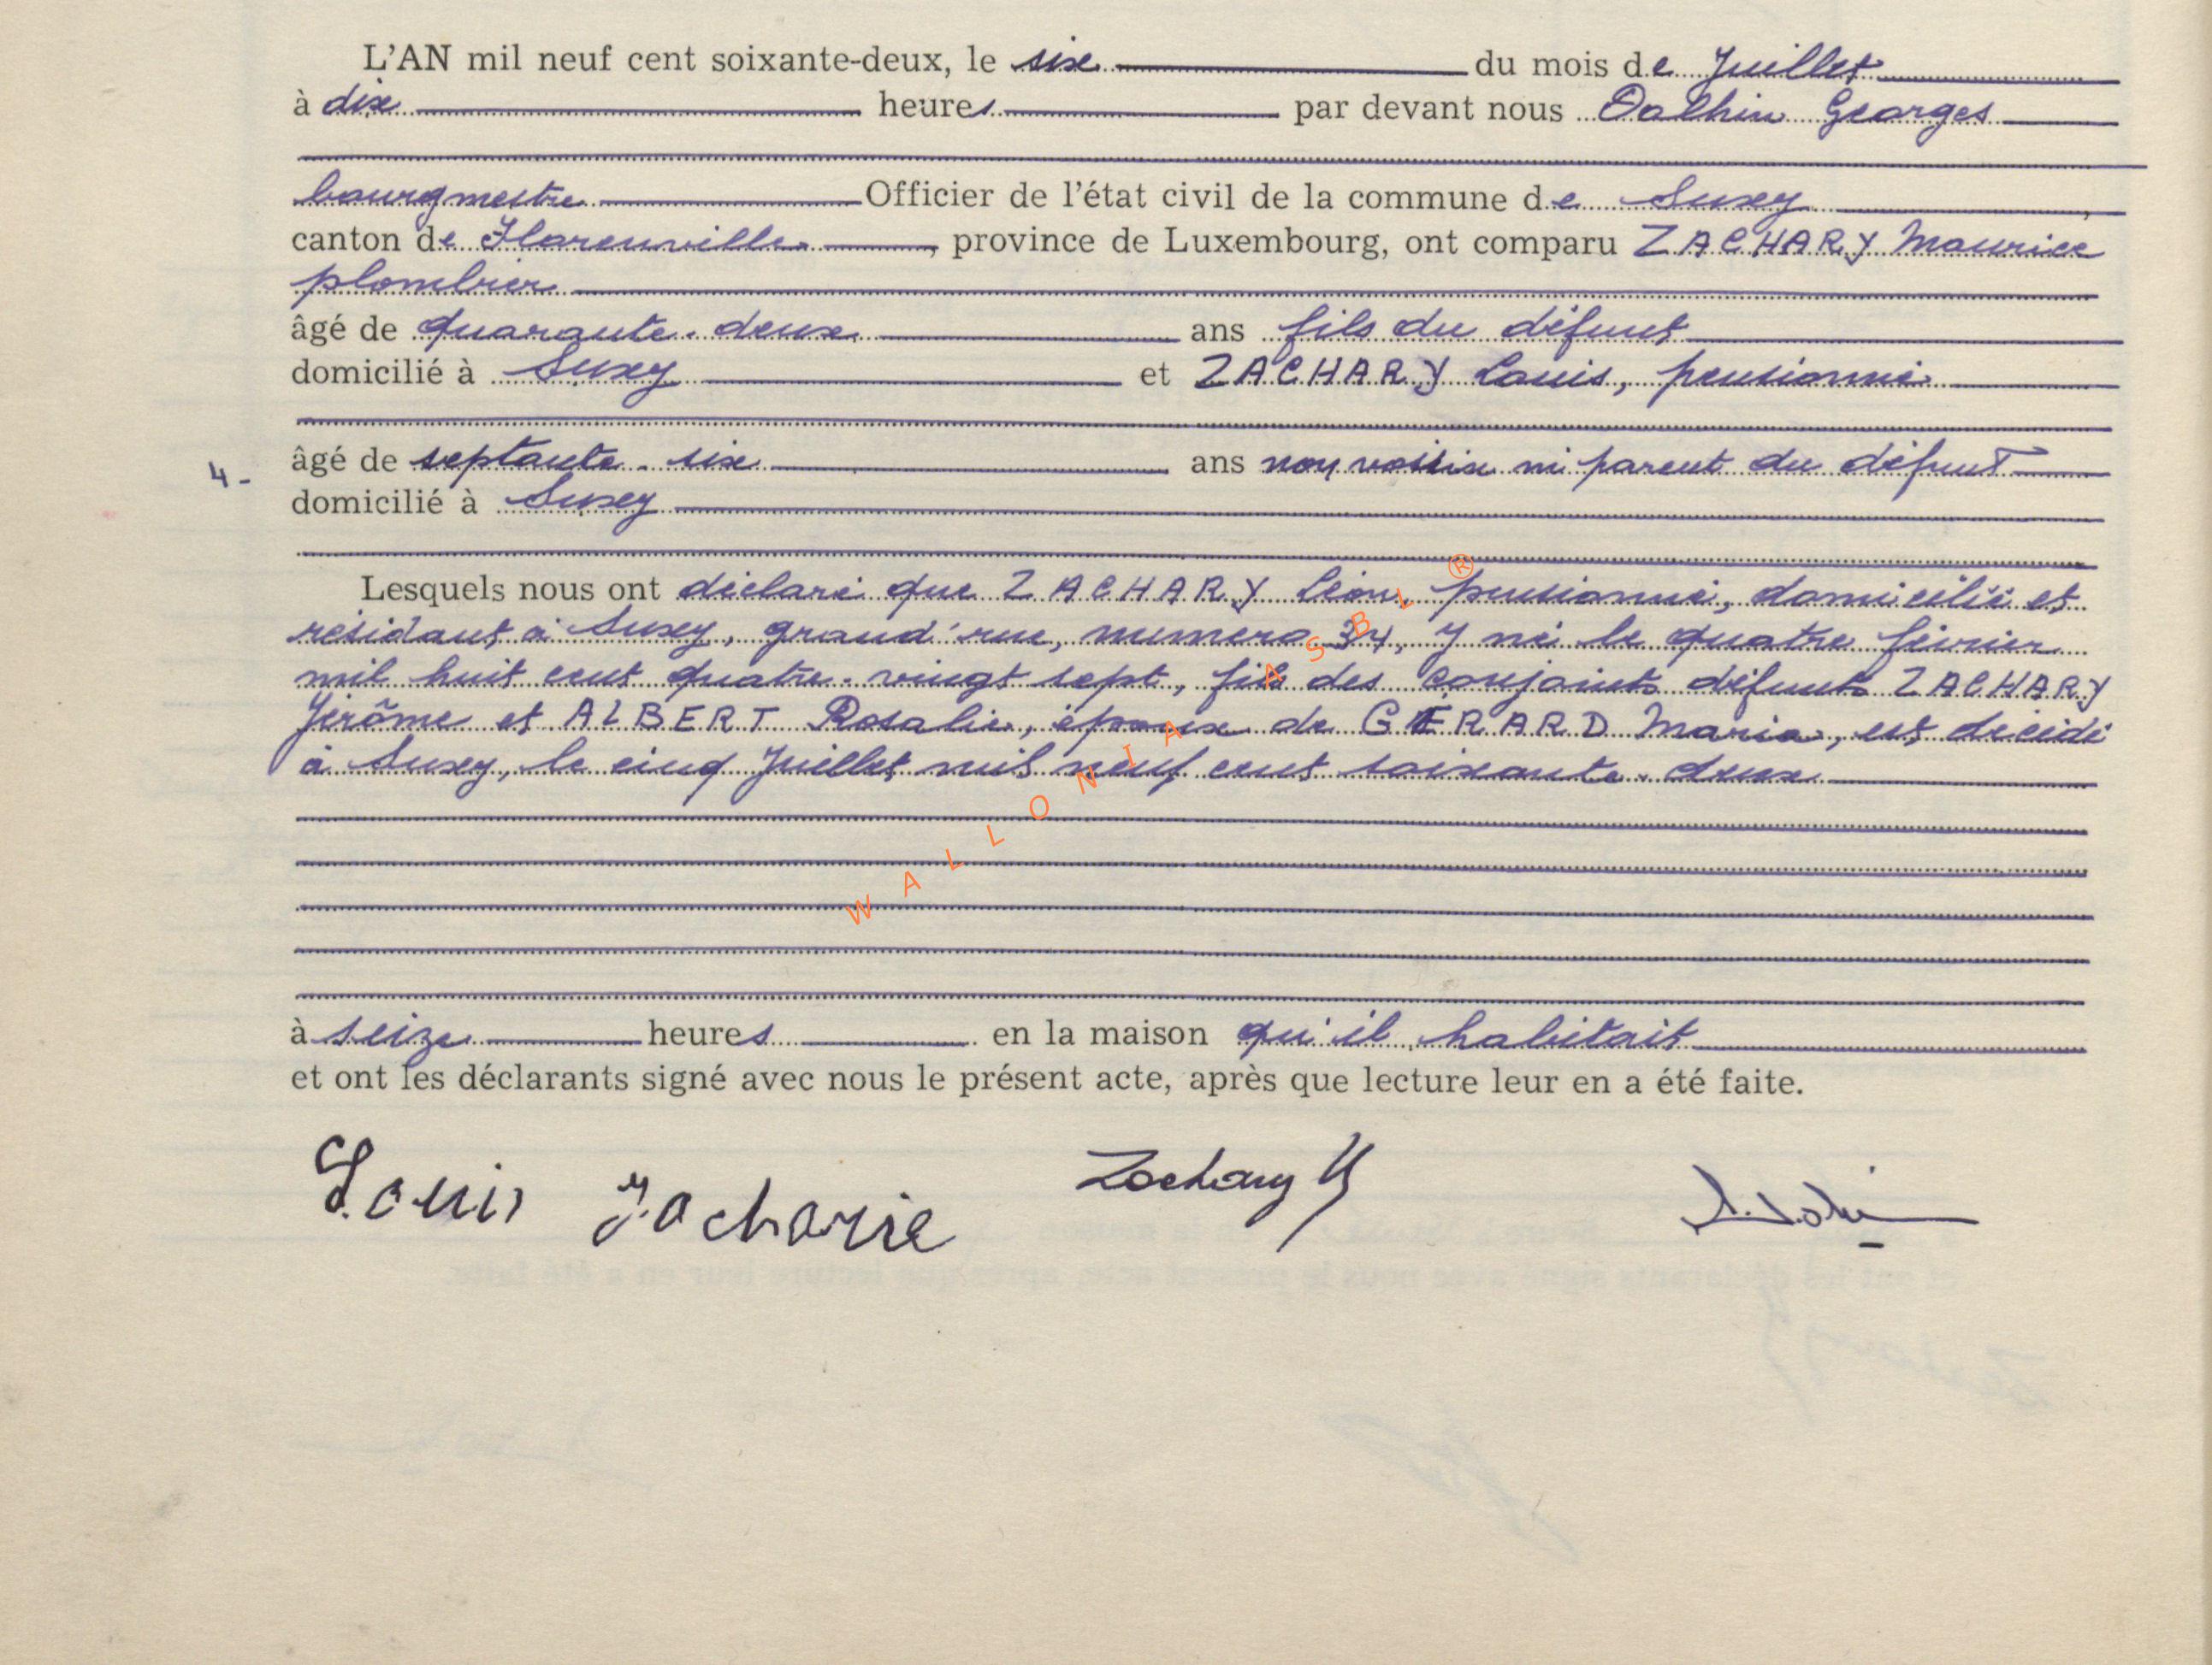 L'AN mil neuf cent soixante-deux, le six du mois de Juillet
à dix heures par devant nous Georges
bourgmestre Officier de l'état civil de la commune de Suxy,
canton de Florenville, province de Luxembourg, ont comparu ZACHARY Maurice
plombier
âgé de quarante-deux ans fils du défunt
domicilié à Suxy et ZACHARY Louis, pensionné
4- âgé de septante-six ans non voisin ni parent du défunt
domicilié à Suxy
Lesquels nous ont déclaré que ZACHARY Léon, pensionné, domicilié et
résidant à Suxy, grand'rue, numéro 34, y né le quatre février
mil huit cent quatre-vingt sept, fils des conjoints défunts ZACHARY
Jérôme et ALBERT Rosalie, époux de GERARD Maria, est décédé
à Suxy, le cinq Juillet mil neuf cent soixante-deux
à seize heures en la maison qu'il habitait
et ont les déclarants signé avec nous le présent acte, après que lecture leur en a été faite.
Louis Zacharie Zachary
WALLONIA ASBL ®